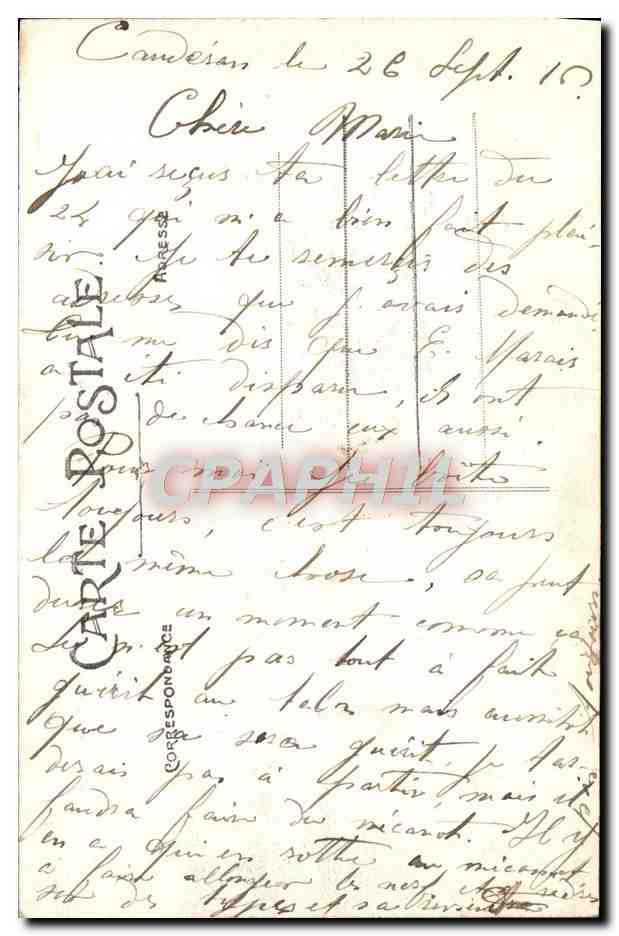 Caudéran le 26 Sept. 15.
Chère Marie
J'ai reçus ta lettre du
24 qui m'a bien fait plai-
sir. Je te remercie des
adresses que j'avais demandé
tu me dis que E. Marais
a été disparu, ils ont
pas de chance eux aussi.
Pour moi je boîte
toujours, c'est toujours
la même chose, sa peut
durer un moment comme ça
Je n'est pas tout à fait
guérit au talon mais aussitôt
que sa sera guérit, je tar-
derais pas à partir, mais il
faudra faire du mécanot. Il y
en a qui en sothe au mécanot
à faire allonger les nerf
sur des types et sa revient
toujours
CARTE POSTALE
ADRESSE
CORRESPONDANCE
CPAPHIL